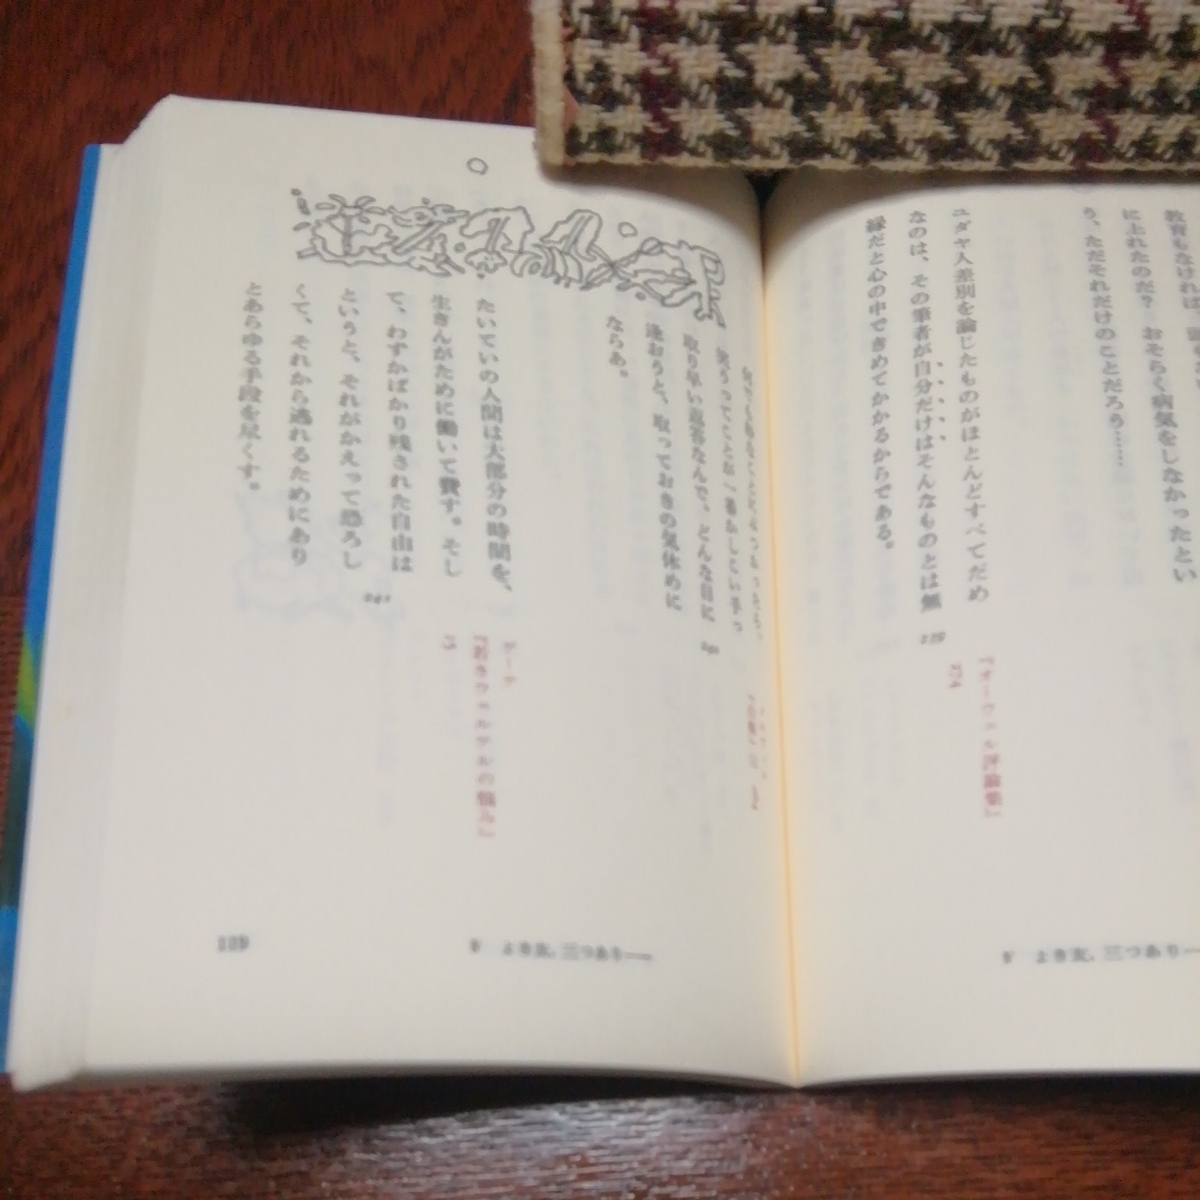 に上れたのだ？　おそらく病気をしなかったとい
う、ただそれだけのことだろう……
ユダヤ人差別を論じたものがほとんどすべてだめ
なのは、その筆者が自分だけはそんなものとは無
縁だと心の中できめてかかるからである。
『オーウェル評論集』
274
239
V　よき友、三つあり──
取り早い返答なんで、どんな目に
逢おうと、取っておきの気休めに
ならあ。
240
たいていの人間は大部分の時間を、
生きんがために働いて費す。そし
て、わずかばかり残された自由は
というと、それがかえって恐ろし
くて、それから逃れるためにあり
とあらゆる手段を尽くす。
241
ゲーテ
『若きウェルテルの悩み』
15
V　よき友、三つあり──
139